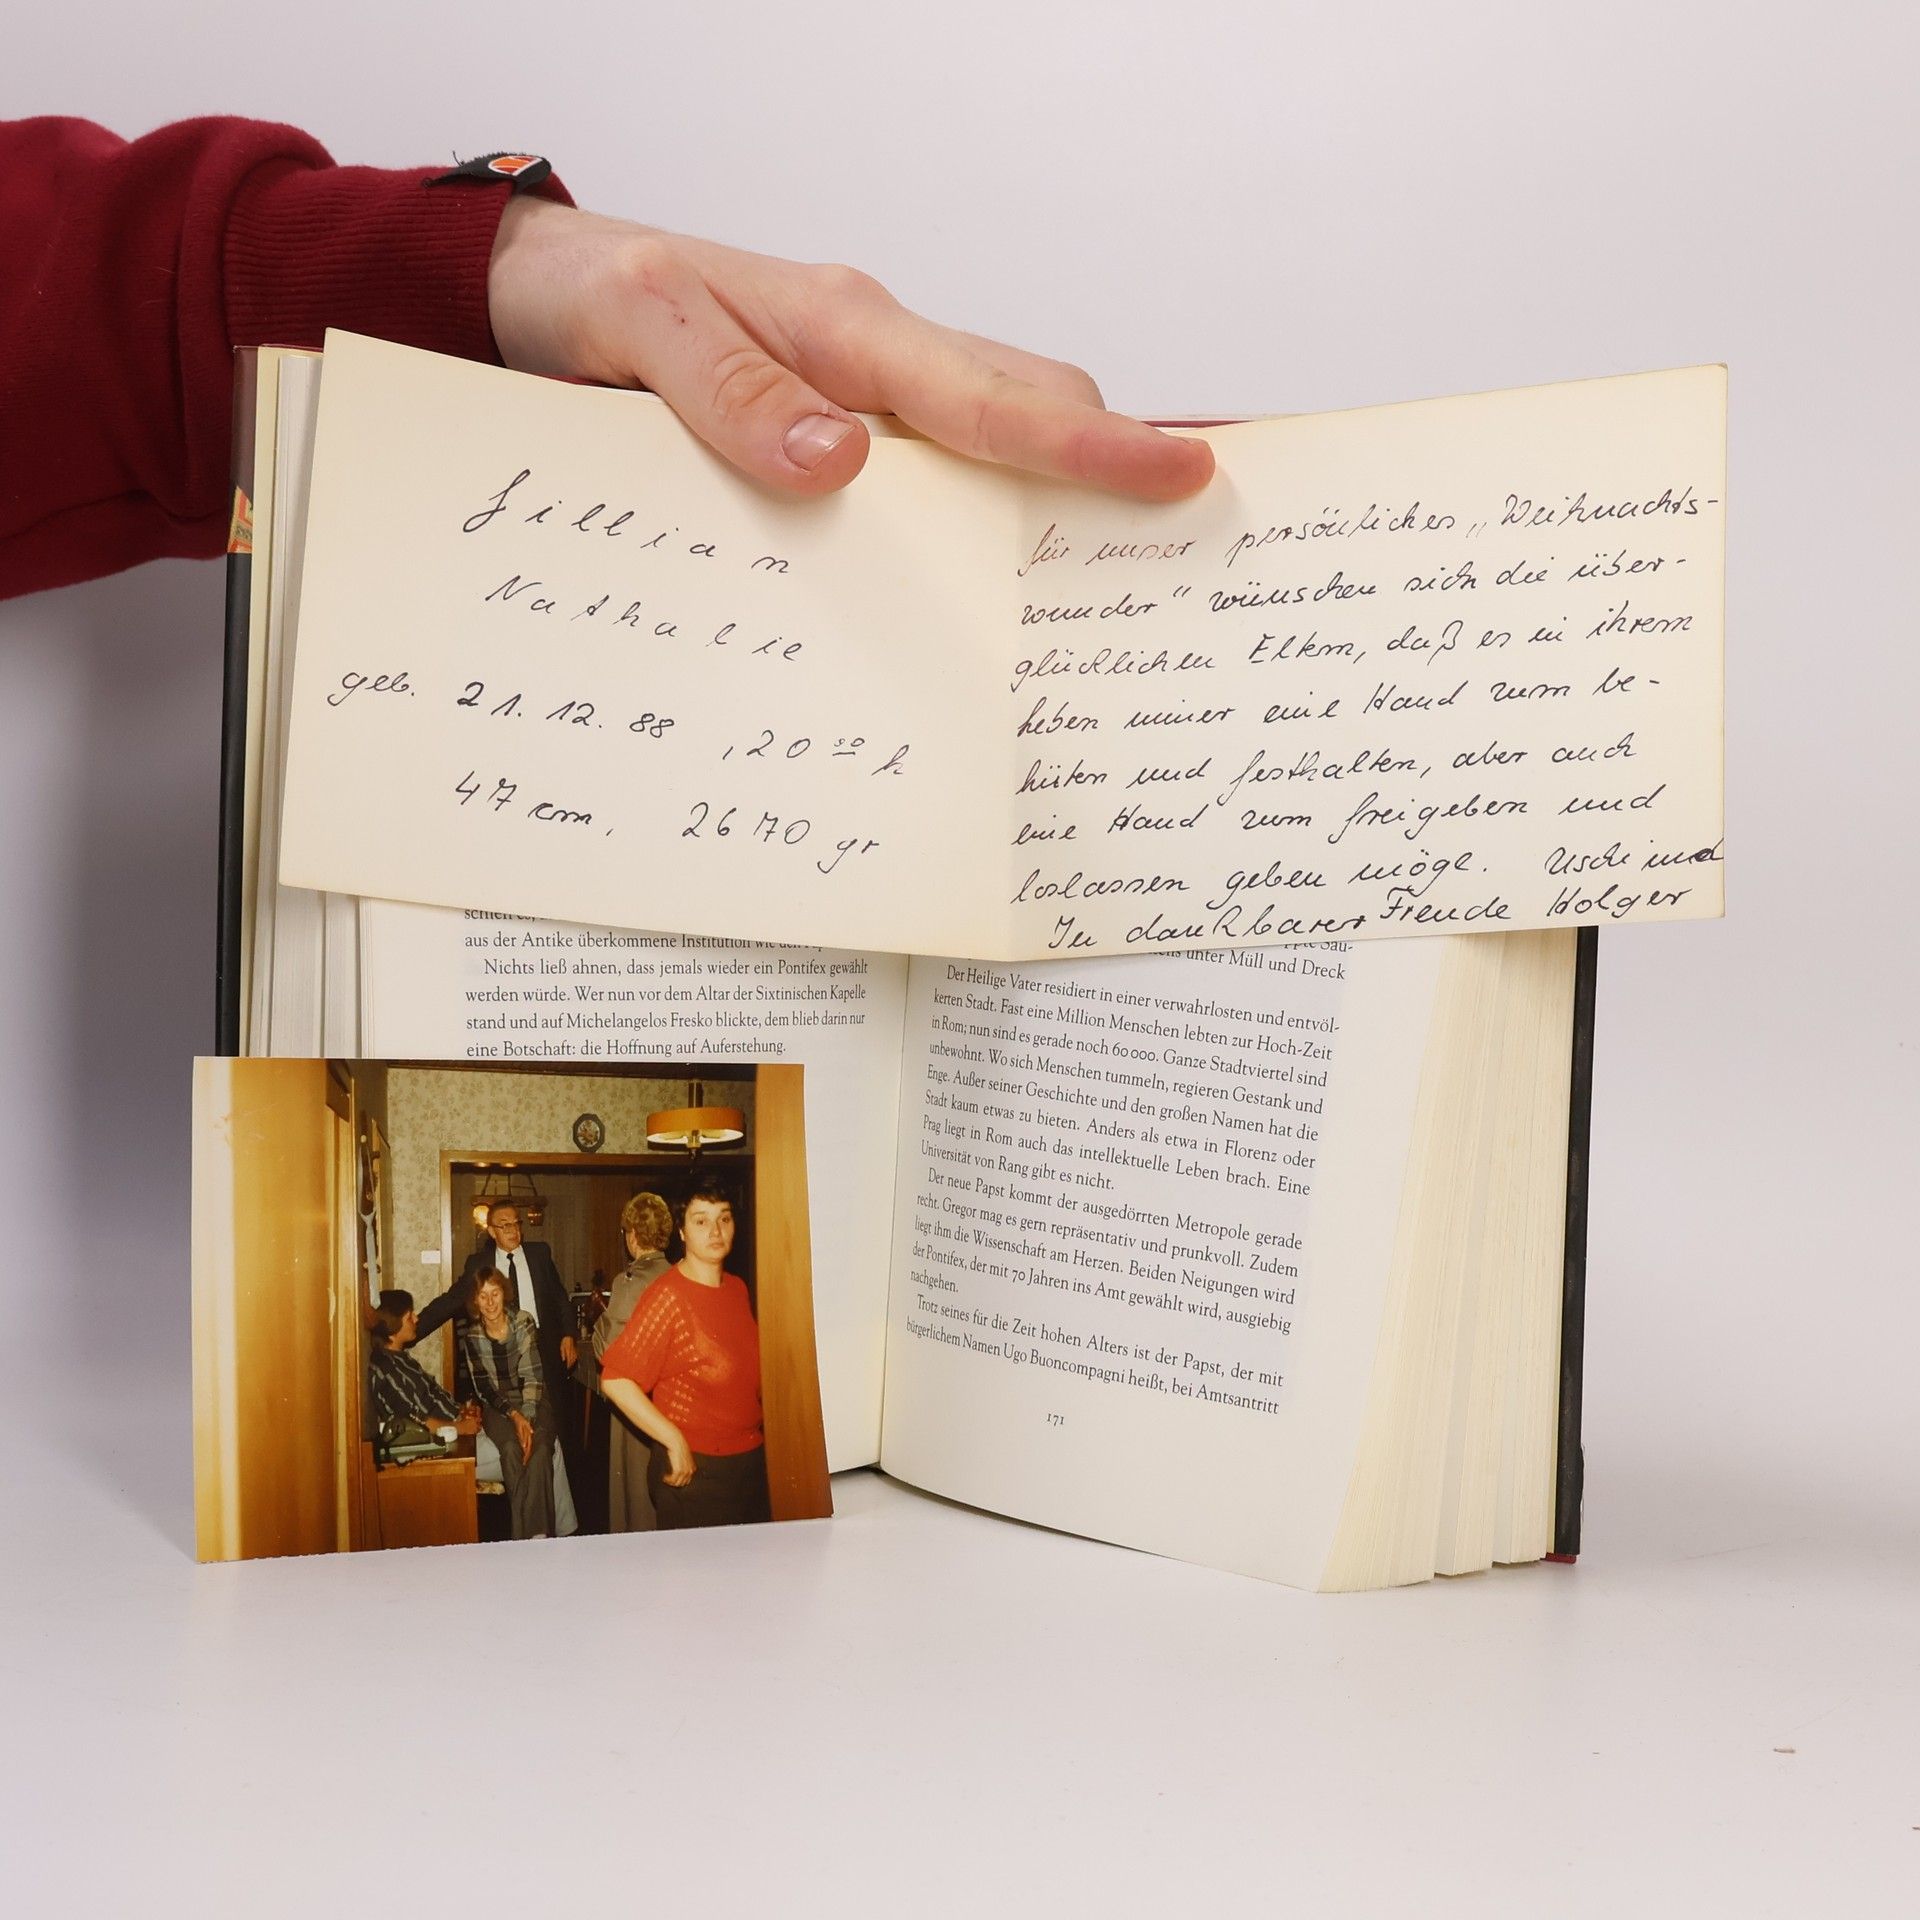 Lillian
Nathalie
geb. 21.12.88, 20⁰⁰ h
47 cm, 2670 gr
für unser persönliches „Weihnachts-
wunder" wünschen sich die über-
glücklichen Eltern, daß es in ihrem
Leben immer eine Hand zum be-
hüten und festhalten, aber auch
eine Hand zum freigeben und
loslassen geben möge. Uschi und
In dankbarer Freude Holger
aus der Antike überkommene Institution wie
Nichts ließ ahnen, dass jemals wieder ein Pontifex gewählt
werden würde. Wer nun vor dem Altar der Sixtinischen Kapelle
stand und auf Michelangelos Fresko blickte, dem blieb darin nur
eine Botschaft: die Hoffnung auf Auferstehung.
unter Müll und Dreck
Der Heilige Vater residiert in einer verwahrlosten und entvöl-
kerten Stadt. Fast eine Million Menschen lebten zur Hoch-Zeit
in Rom; nun sind es gerade noch 60 000. Ganze Stadtviertel sind
unbewohnt. Wo sich Menschen tummeln, regieren Gestank und
Enge. Außer seiner Geschichte und den großen Namen hat die
Stadt kaum etwas zu bieten. Anders als etwa in Florenz oder
Prag liegt in Rom auch das intellektuelle Leben brach. Eine
Universität von Rang gibt es nicht.
Der neue Papst kommt der ausgedörrten Metropole gerade
recht. Gregor mag es gern repräsentativ und prunkvoll. Zudem
liegt ihm die Wissenschaft am Herzen. Beiden Neigungen wird
der Pontifex, der mit 70 Jahren ins Amt gewählt wird, ausgiebig
nachgehen.
Trotz seines für die Zeit hohen Alters ist der Papst, der mit
bürgerlichem Namen Ugo Buoncompagni heißt, bei Amtsantritt
171